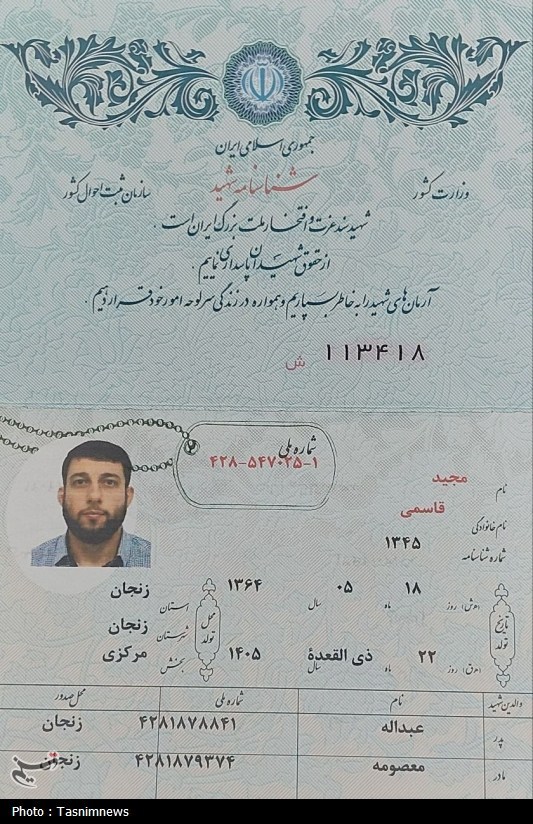 جمهوری اسلامی ایران
وزارت کشور
شناسنامه شهید
سازمان ثبت احوال کشور
شهید سند عزت و افتخار ملت بزرگ ایران است .
از حقوق شهیدان پاسداری نماییم .
آرمان‌های شهید را به خاطر بسپاریم و همواره در زندگی سرلوحه امور خود قرار دهیم .
۱۱۳۴۱۸ ش
شماره ملی
۴۲۸-۵۴۷۰۲۵-۱
نام مجید
نام خانوادگی قاسمی
شماره شناسنامه ۱۳۴۵
تاریخ تولد
(ه‍ش) روز ۱۸ ماه ۰۵ سال ۱۳۶۴
(ه‍ق) روز ۲۲ ماه ذی القعدة سال ۱۴۰۵
محل تولد
استان زنجان
شهرستان زنجان
بخش مرکزی
والدین شهید نام شماره ملی محل صدور
پدر عبداله ۴۲۸۱۸۷۸۸۴۱ زنجان
مادر معصومه ۴۲۸۱۸۷۹۳۷۴ زنجان
تسنیم
Photo : Tasnimnews